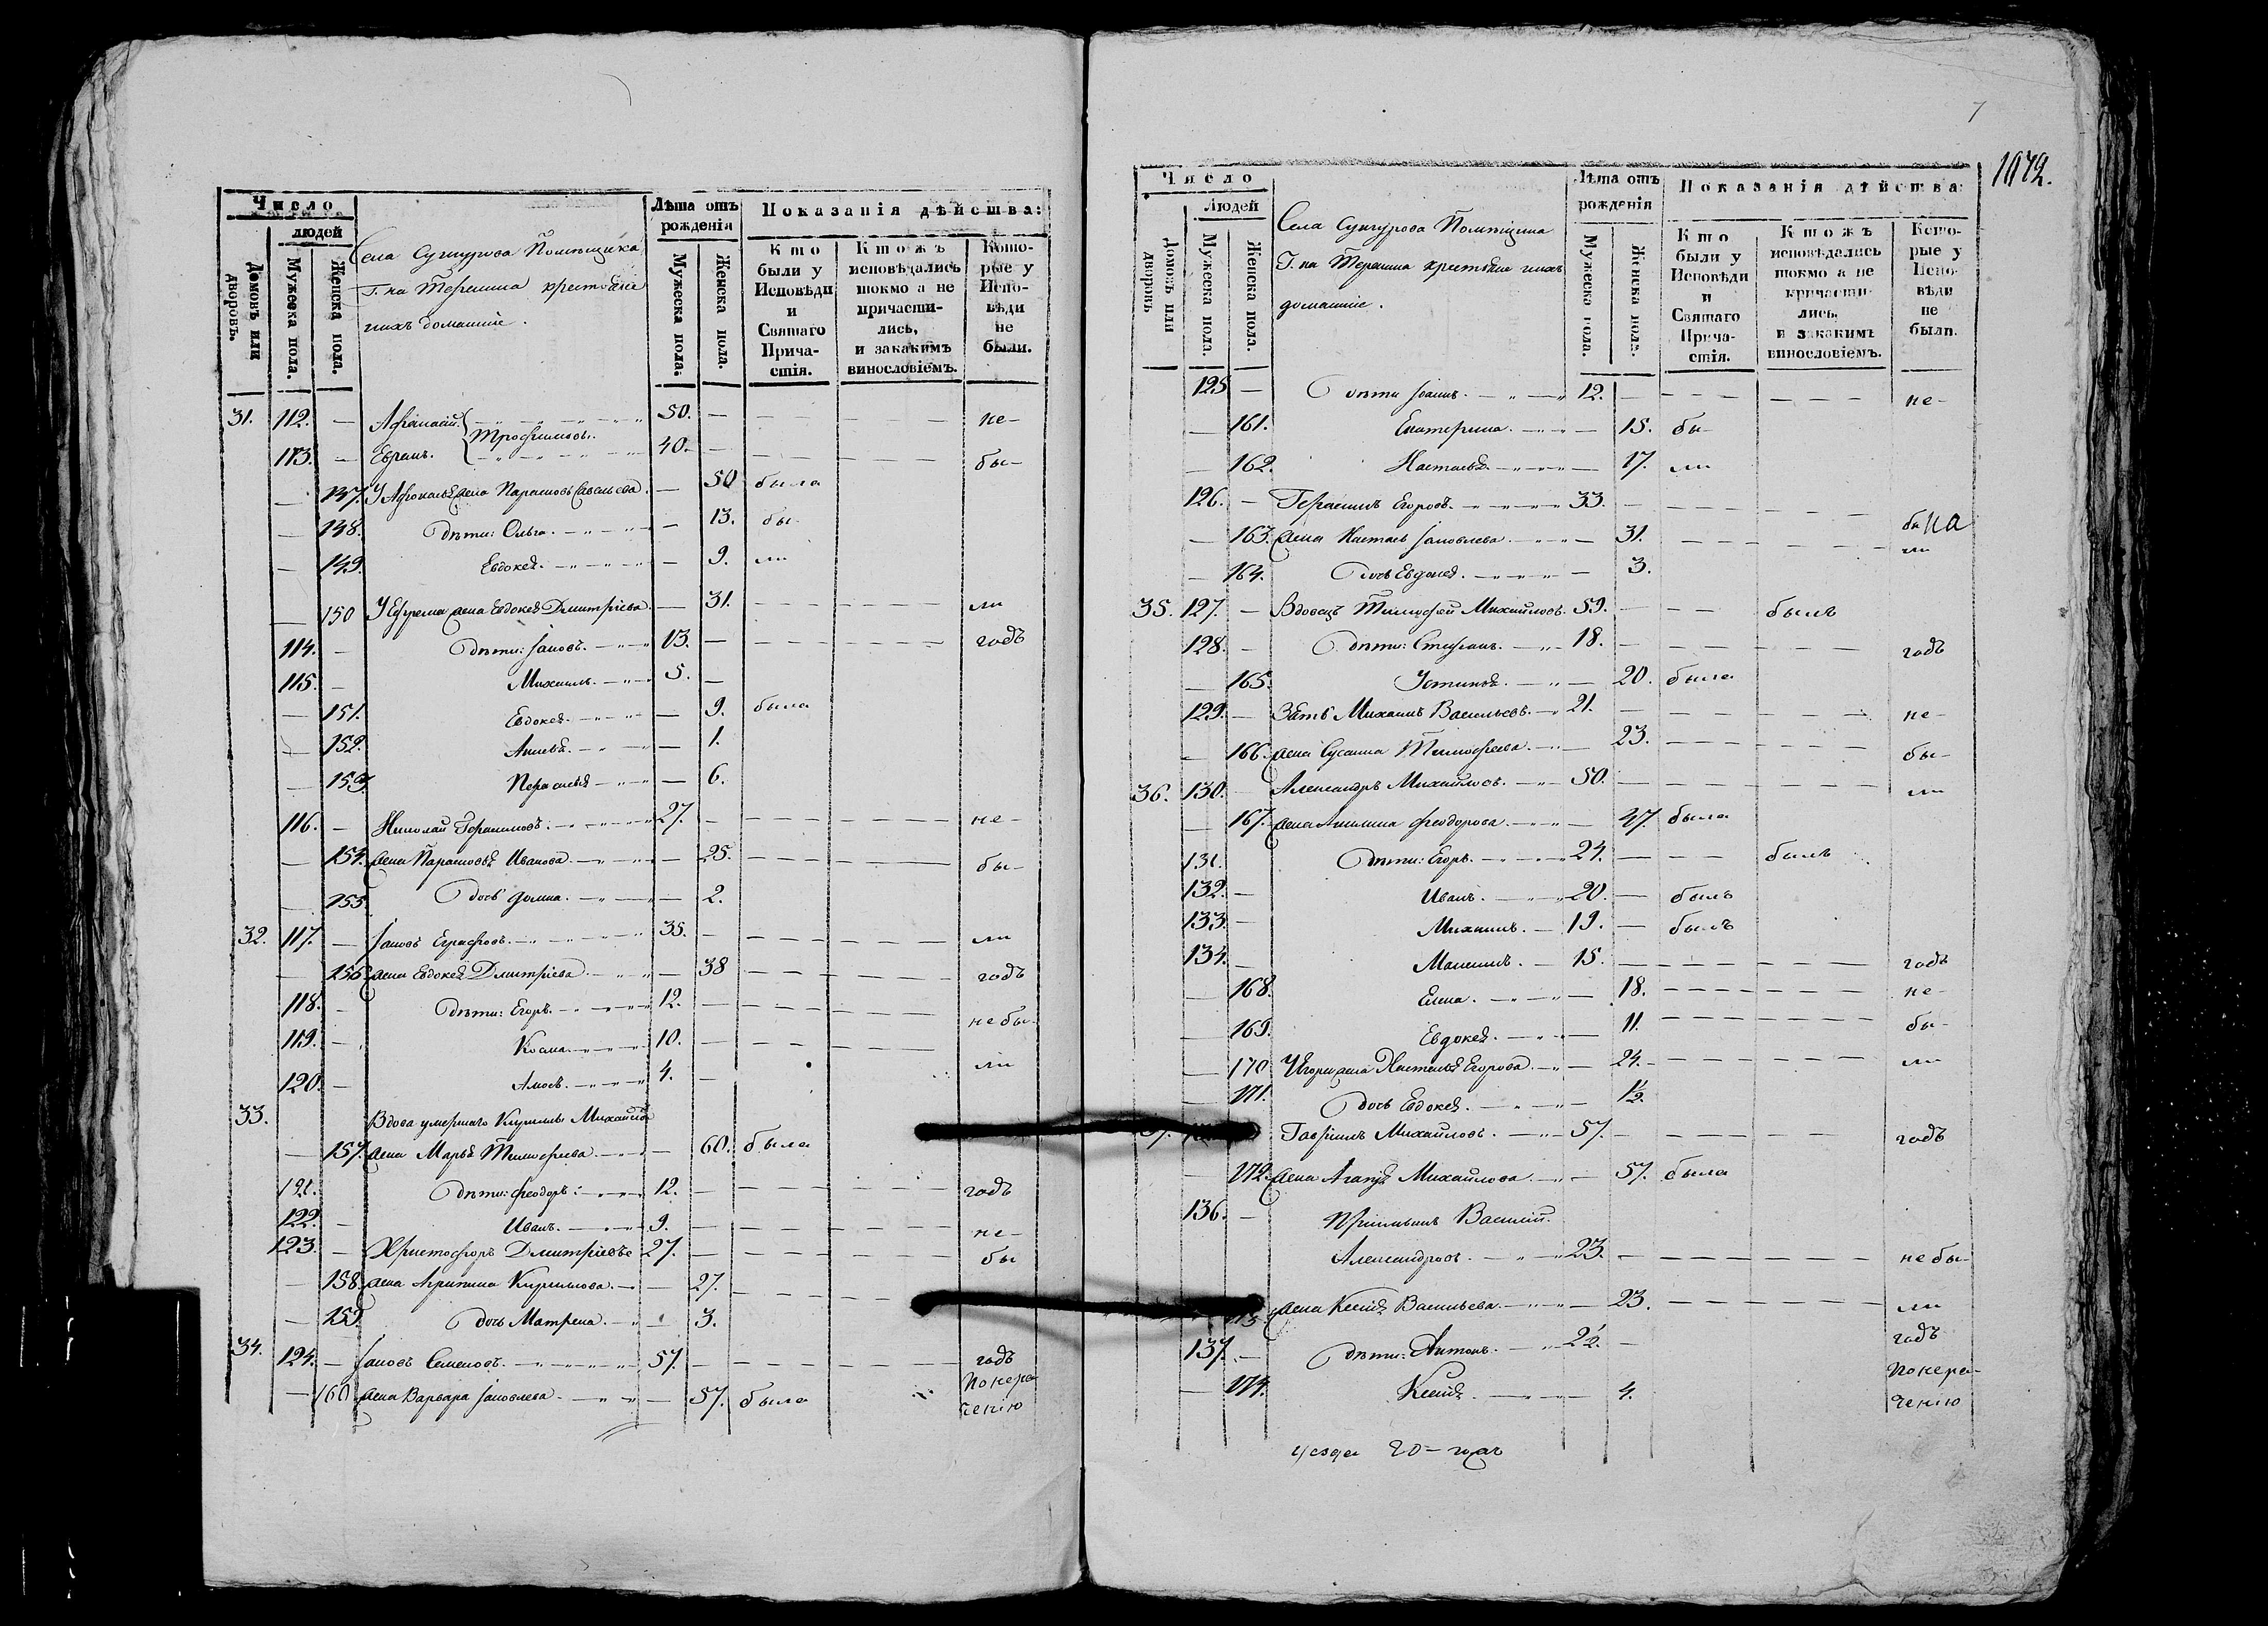 Число
людей
Домовъ или дворовъ.
Мужеска пола.
Женска пола.
Села Сунгурова Помѣщика
Г. на Терешина крестьяне
ихъ домашніе.
Лѣта отъ рожденія
Мужеска пола.
Женска пола.
Показанія дѣйства:
Кто были у Исповѣди и Святаго Причастія.
Ктожъ исповѣдались токмо а не причастились, и закакимъ винословіемъ.
Которые у Исповѣди не были.
31. 112. — Афанасій 50. — не-
Трофимовы.
113. — Ефремъ. 40. — бы-
— 147. У Афанасья жена Парасковья Савельева. — 50 была
— 148. Дѣти: Ольга. — 13. бы-
— 149. Евдокея. — 9. ли
— 150 У Ефрема жена Евдокея Дмитріева. — 31. ли
114. — Дѣти: Іаковъ. 13. — годъ
115. — Михаилъ. 5. —
— 151. Евдокея. — 9. была
— 152. — 1.
— 153. Парасковья — 6.
116. — Николай Герасимовъ. 27. — не-
— 154. жена Парасковья Иванова. — 25. бы-
— 155. Дочь Домна. — 2.
32. 117. — Іаковъ 35. — ли
— 156. жена Евдокея Дмитріева — 38 годъ
118. — Дѣти: Егоръ. 12. — не бы-
119. — Косма. 10. — ли
120. — Амосъ. 4. —
33. Вдова умершаго Кирилы Михайлова
— 157. жена Марья Тимофеева — 60. была
121. Дѣти: Феодоръ. 12. — годъ
122. — Иванъ. 9. — не-
123. — Христофоръ Дмитріевъ 27. — бы
— 158. жена Акулина Кирилова. — 27.
— 159. Дочь Матрена. — 3.
34. 124. — Іаковъ Семеновъ. 57. — годъ
— 160. жена Варвара Іаковлева — 57. была
По нера-
ченію
7
1072.
Число
Людей
Домовъ или дворовъ
Мужеска пола.
Женска пола.
Села Сунгурова Помѣщика
Г. на Терешина крестьяне ихъ
домашніе.
Лѣта отъ рожденія
Мужеска пола.
Женска пола.
Показанія дѣйства:
Кто были у Исповѣди и Святаго Причастія.
Ктожъ исповѣдались токмо а не причастились, и закакимъ винословіемъ.
Которые у Исповѣди не были.
125 — Дѣти Іоаннъ. 12. — не-
— 161. Екатерина. — 15. бы-
— 162. Настасья. — 17. ли
126. — Герасимъ Егоровъ. 33. —
— 163. жена Настасья Іаковлева. — 31. бы
на
ли
— 164. Дочь Евдокея. — 3.
35. 127. — Вдовецъ Тимофей Михайловъ. 59. — былъ
128. — Дѣти: Стефанъ. 18. — годъ
— 165. Устинья. — 20. была
129. — Зять Михаилъ Васильевъ. 21. — не-
— 166. жена Сусанна Тимофеева. — 23. бы-
36. 130. — Александръ Михайловъ. 50. — ли
— 167. жена Феодорова. — 47. была
131. Дѣти: Егоръ. 24. — былъ
132. — Иванъ. 20. — былъ
133. — Михаилъ. 19. — былъ
134. — Максимъ. 15. — годъ
— 168. Елена. — 18. не-
— 169. Евдокея. — 11. бы-
— 170 У Егора жена Настасья Егорова. — 24. ли
— 171. Дочь Евдокея. — 1½.
37. Гавріилъ Михайловъ. 57. — годъ
— 172. жена Агафья Михайлова. — 57. была
136. — Пріимышъ Василій
Александровъ. 23. — не бы-
173. жена Ксенія Васильева. — 23. ли
137. — Дѣти: Антонъ. 2½. — годъ
— 174. Ксенія. — 4.
По нера-
ченію
уезда 20 — годъ